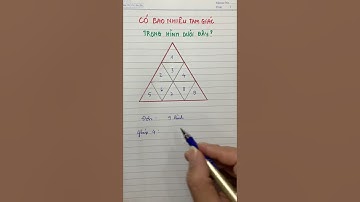 CÓ BAO NHIÊU TAM GIÁC
TRONG HÌNH DƯỚI ĐÂY?
1
2 3 4
5 6 7 8 9
Đơn: 9 hình
Ghép 4